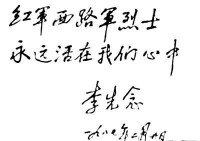 红军西路军烈士
永远活在我们心中
李先念
一九八七年二月廿一日